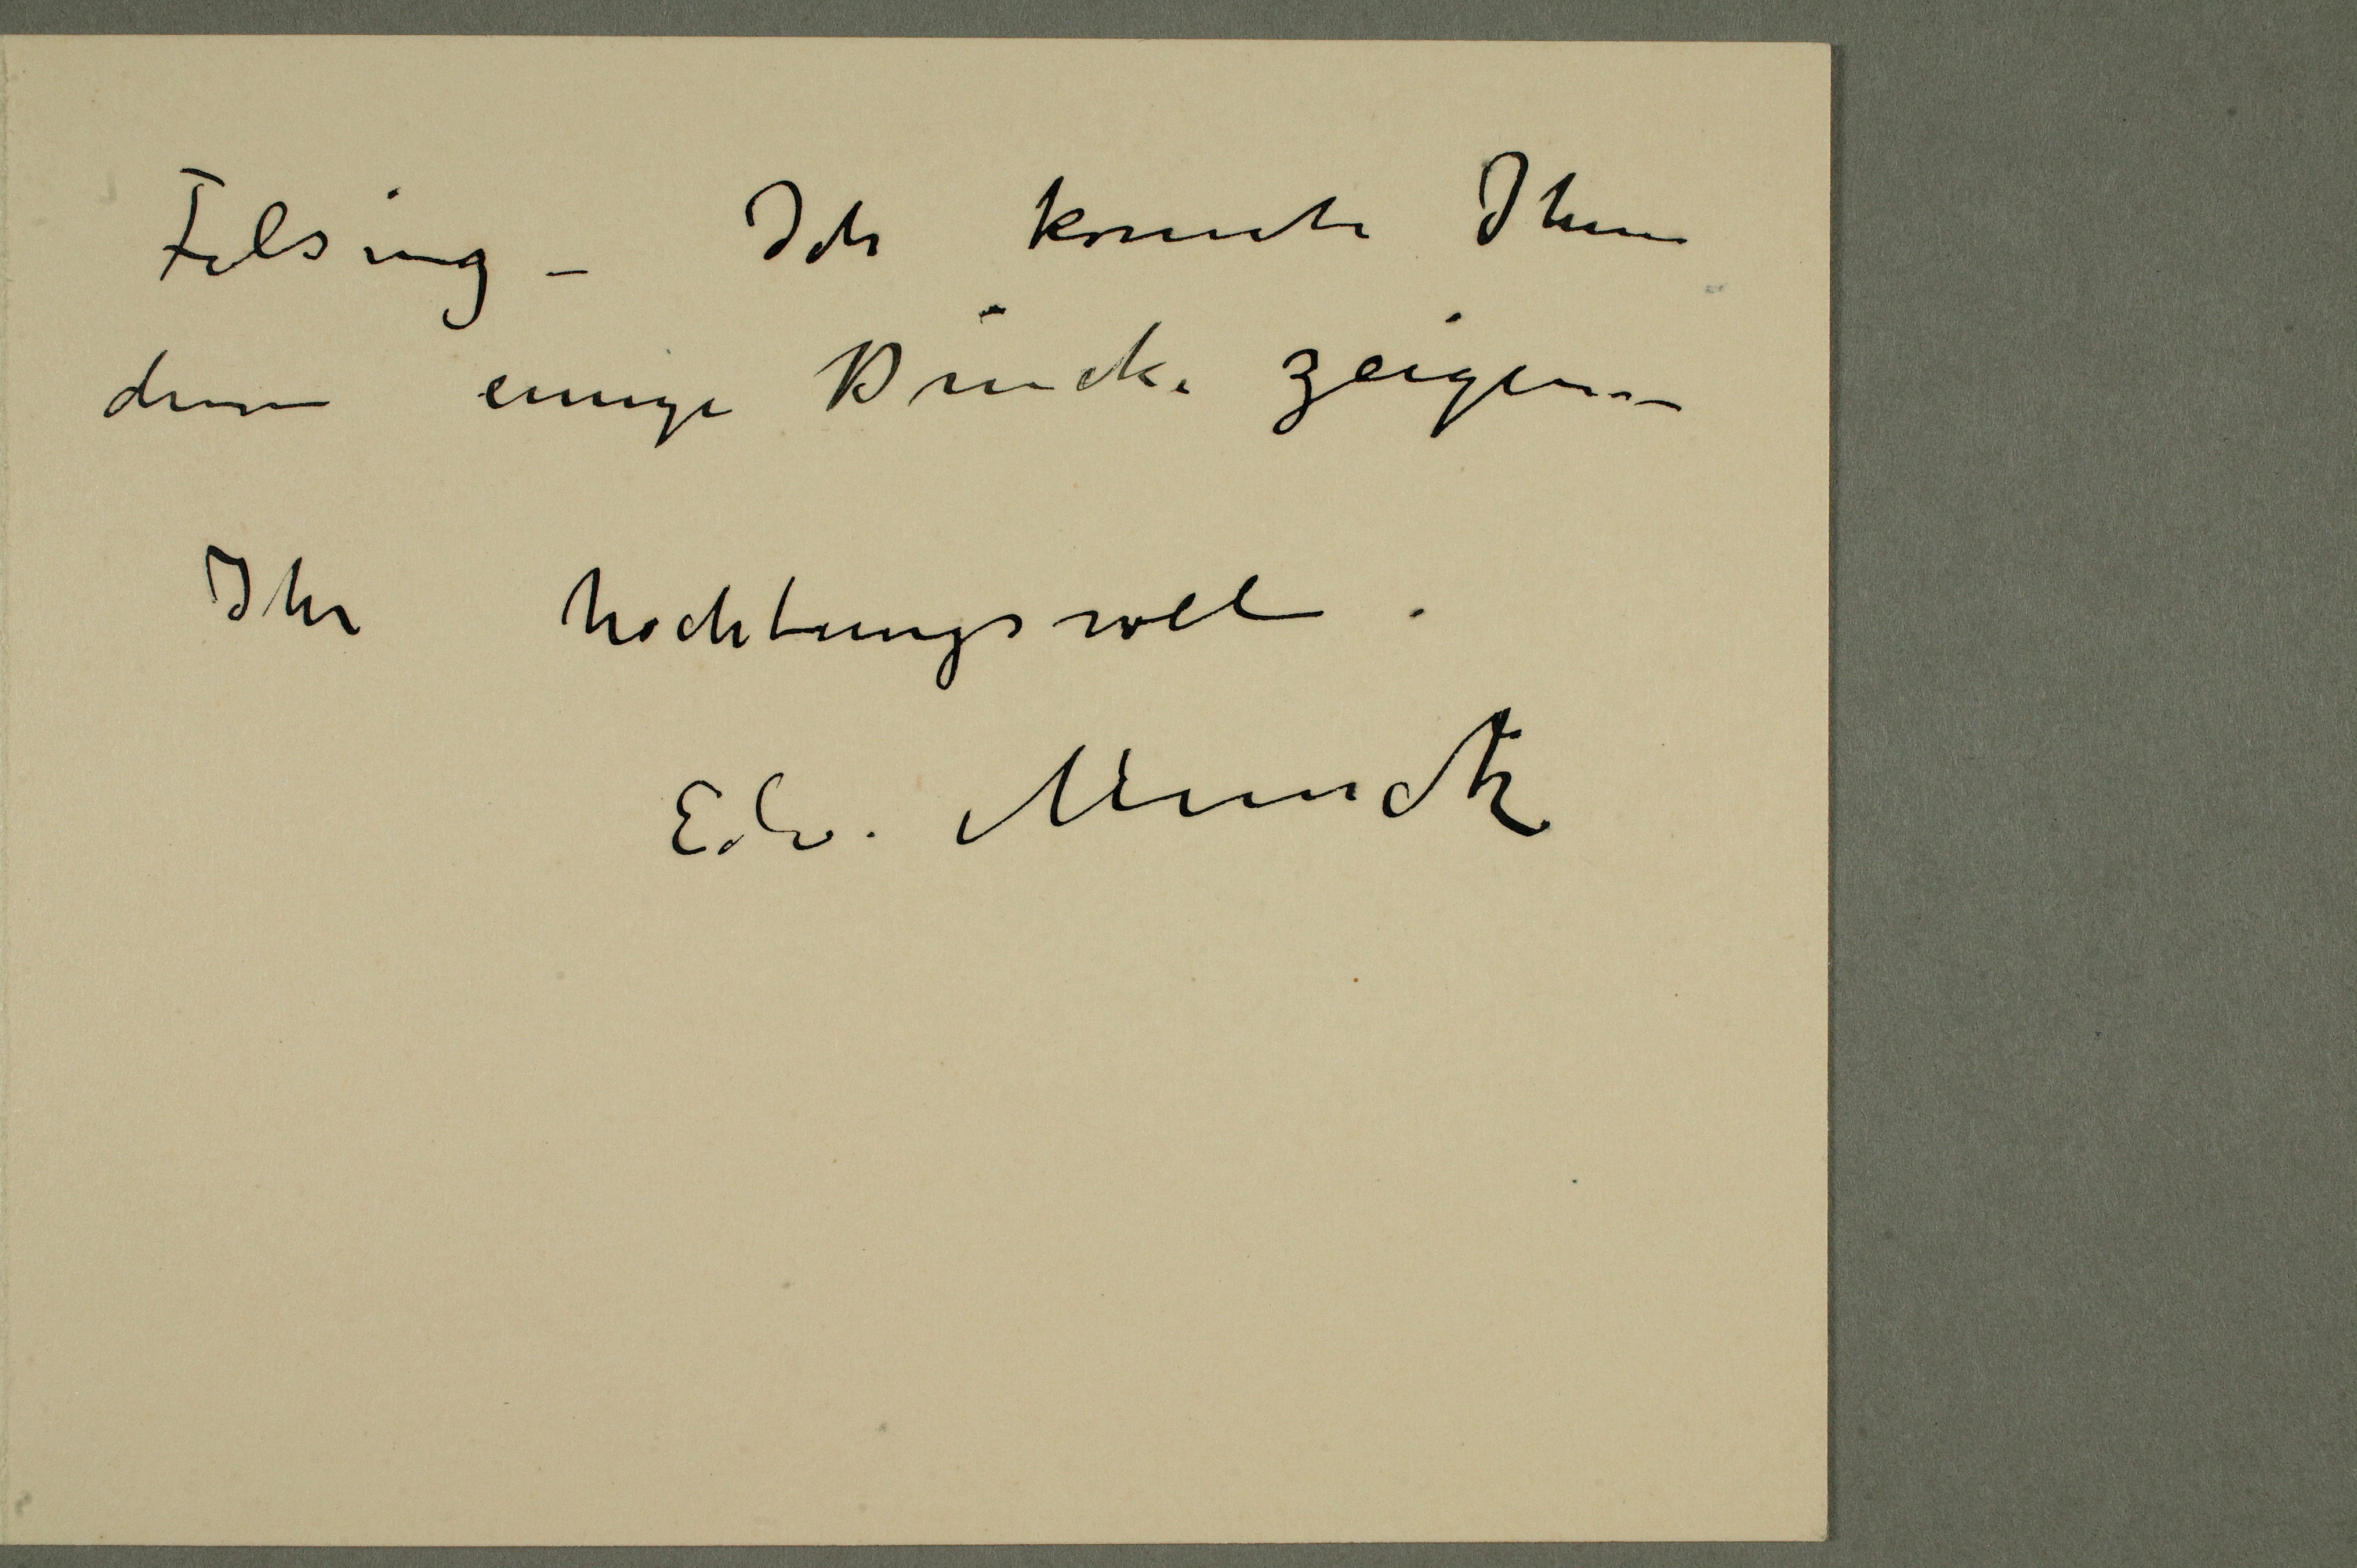 Felsing – Ich konnte Ihnen
dann einige Drücke zeigen –
Ihr hochtungsvoll.
Edv. Munch